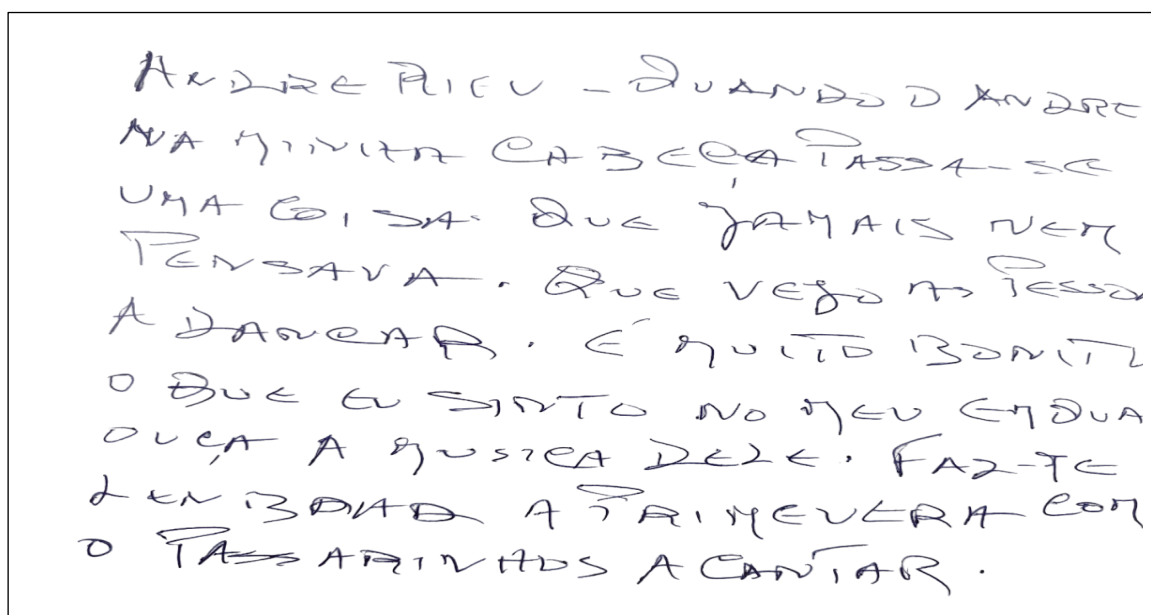 ANDRE RIEU - QUANDO O ANDRE
NA MINHA CABEÇA PASSA-SE
UMA COISA. QUE JAMAIS NEM
PENSAVA. QUE VEJO AS PESSO
A DANCAR. É MUITO BONIT
O QUE EU SINTO NO MEU ENQUA
OUÇA A MUSICA DELE. FAZ-TE
A PRIMEVERA COM
O PASSARINHOS A CANTAR.